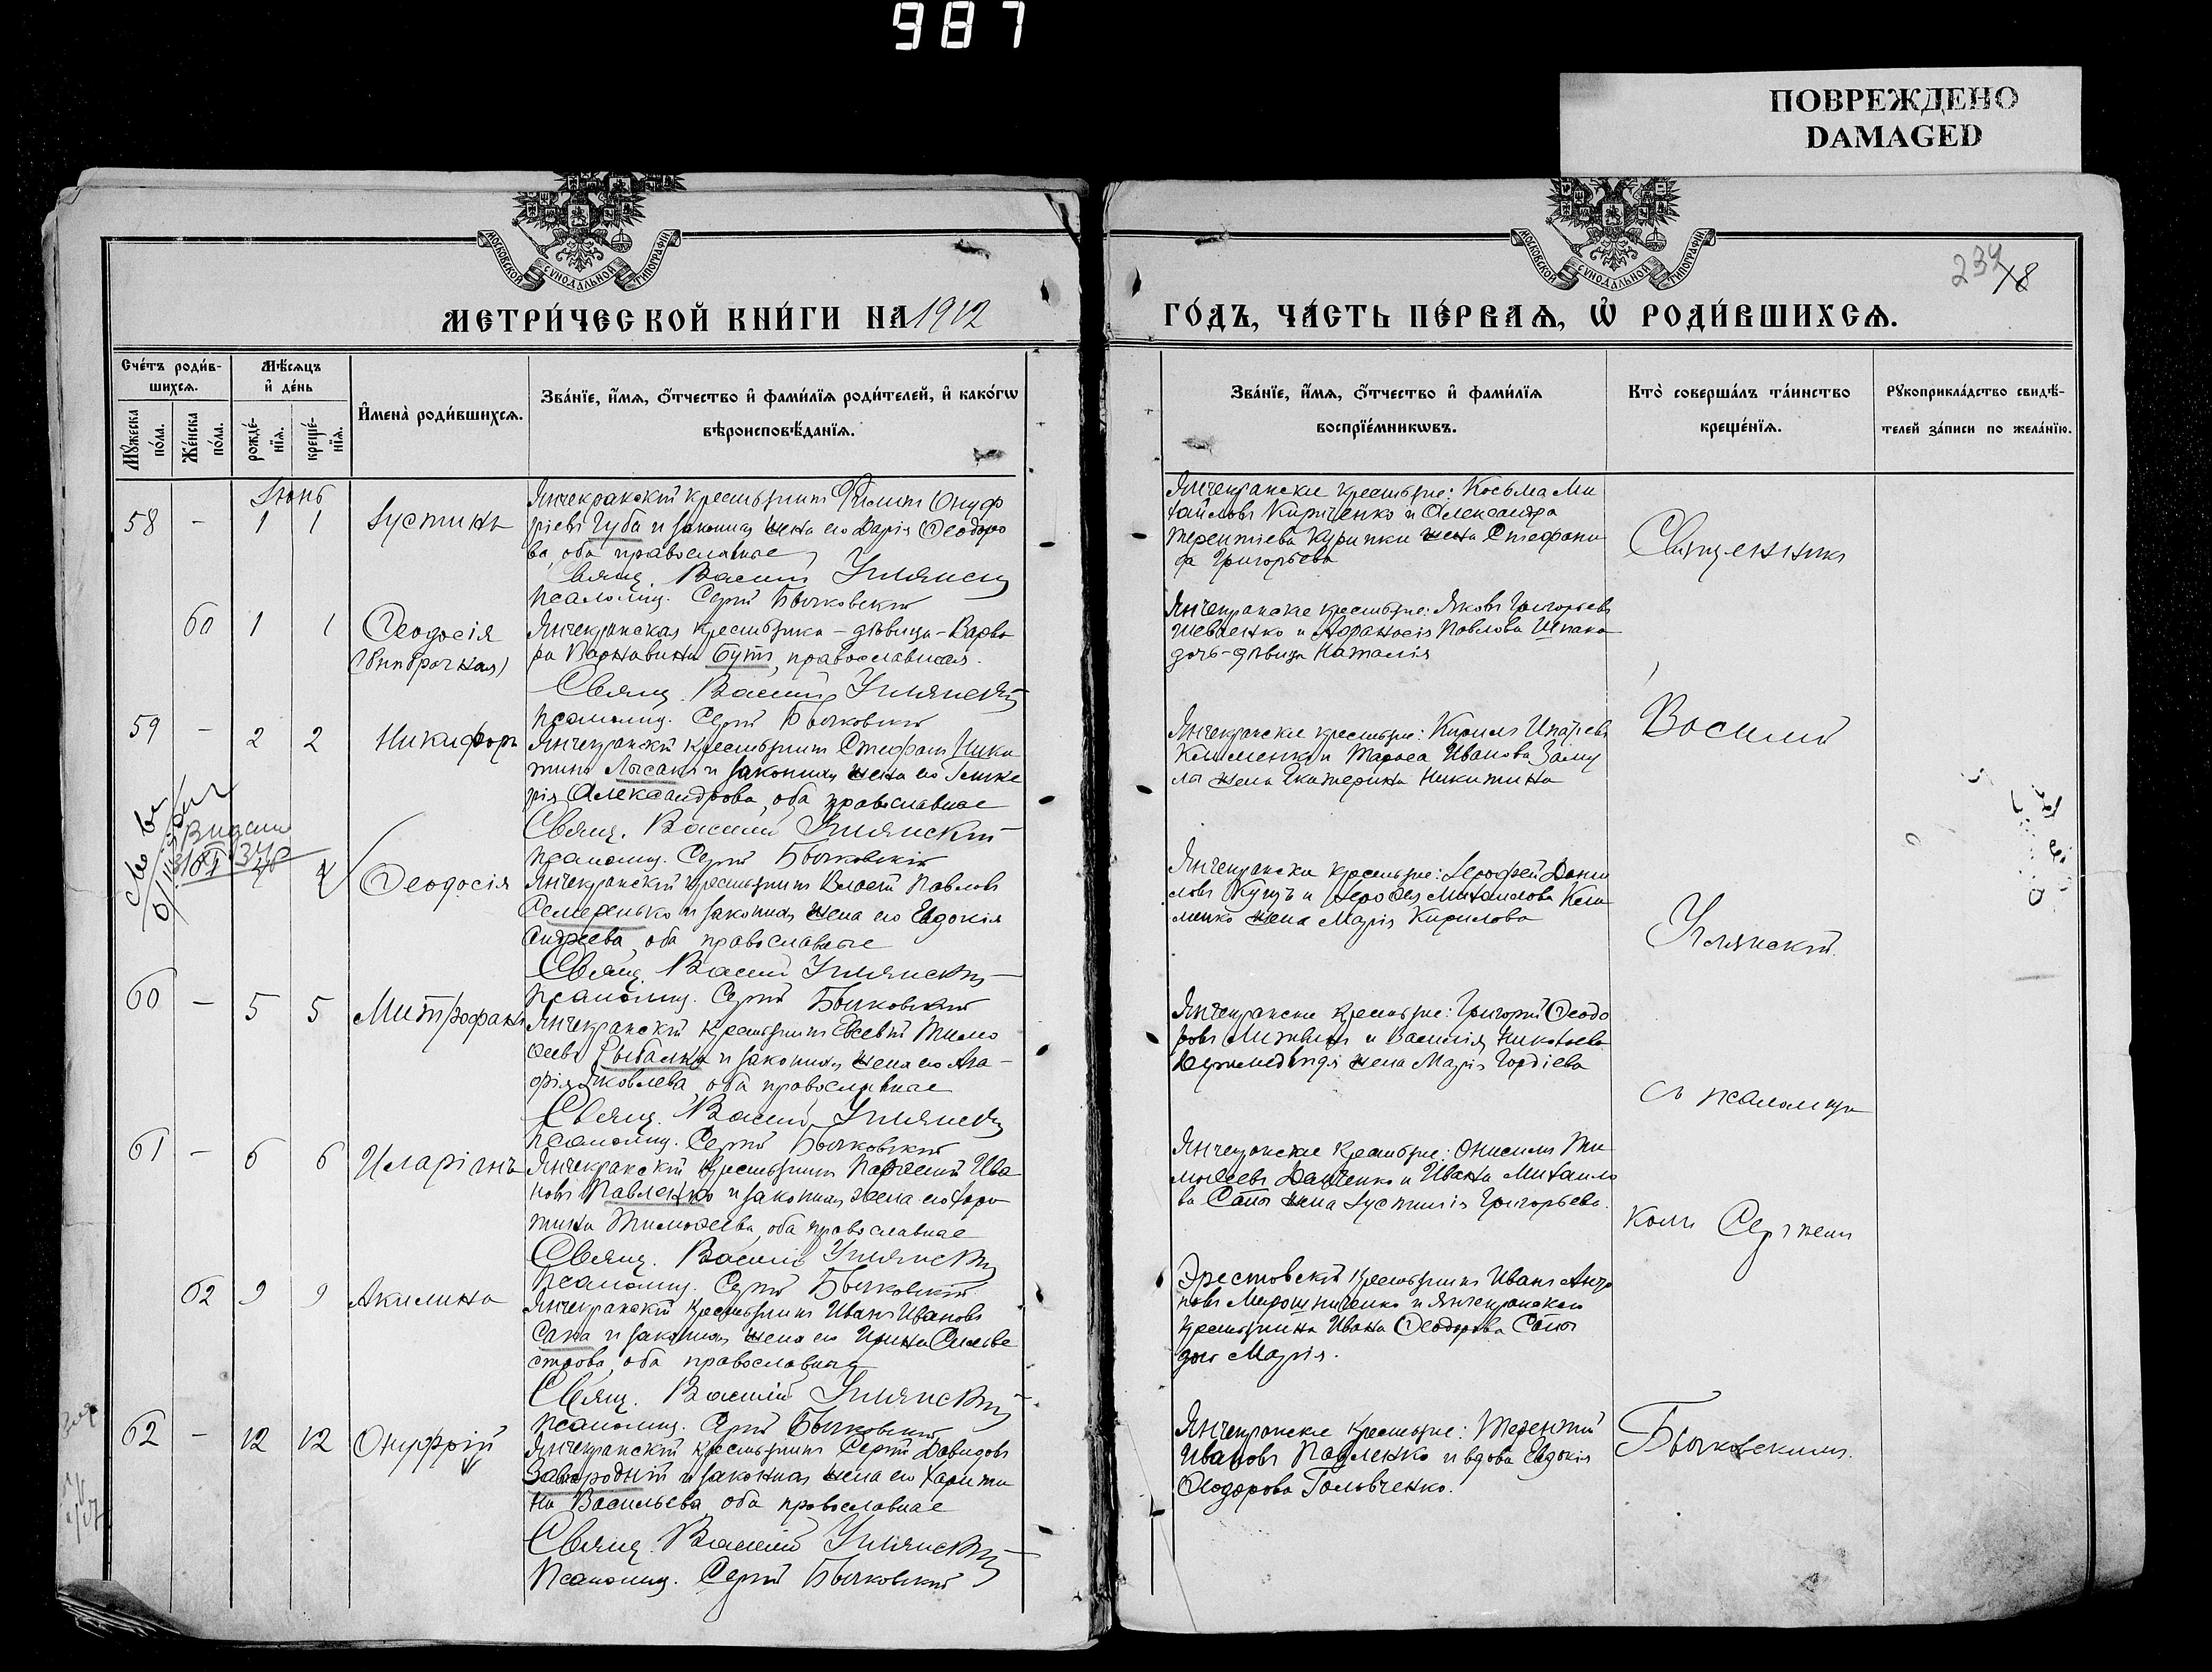 987
ПОВРЕЖДЕНО
DAMAGED
МОСКОВСКОЙ СѴНОДАЛЬНОЙ ТИПОГРАФІИ
МОСКОВСКОЙ СѴНОДАЛЬНОЙ ТИПОГРАФІИ
234
18
МЕТРИ́ЧЕСКОЙ КНИ́ГИ НА 1912
ГО́ДЪ, ЧА́СТЬ ПЕ́РВАѦ, Ѡ҆ РОДИ́ВШИХСѦ.
Сче́тъ роди́в-
шихсѧ.
Мѣ́сѧцъ
и҆ де́нь
Мꙋ́жеска по́ла.
Же́нска по́ла.
рожде́-
нїѧ.
креще́-
нїѧ.
И҆мена̀ роди́вшихсѧ.
Зва́нїе, и҆́мѧ, ѻ҆́тчество и҆ фами́лїѧ роди́телей, и҆ како́гѡ
вѣроисповѣ́данїѧ.
Зва́нїе, и҆́мѧ, ѻ҆́тчество и҆ фами́лїѧ
воспрїе́мникѡвъ.
Кто̀ соверша́лъ та́инство
креще́нїѧ.
Рꙋкоприкла́дство свидѣ́-
телей за́писи по жела́нїю.
Іюнь
58 - 1 1 Іустинъ
Янчекракскій крестьянинъ Филиппъ Онуф
ріевъ Губа и законная жена его Дарія Ѳеодоро
ва, оба православные
Свящ. Василій Улянскій
Псаломщ. Сергій Бычковскій
Янчекракские крестьяне: Косьма Ми
хайловъ Кириченко и Александра
Терентіева Курипки жена Стефани
да Григорьева
60 1 1 Ѳеодосія
(внѣбрачная)
Янчекракская крестьянка - дѣвица - Варва
ра Парнавина Бутъ, православная.
Свящ. Василій Улянскій
Псаломщ. Сергій Бычковскій
Янчекракские крестьяне: Яковъ Григорьевъ
Шевченко и Аѳанасія Павлова Шпака
дочь-дѣвица Наталія
59 - 2 2 Никифоръ
Янчекракскій крестьянинъ Стефанъ Ники
тинъ Лысакъ и законная жена его Глике
рія Александрова, оба православные
Свящ. Василій Улянскій
Псаломщ. Сергій Бычковскій
Янчекракские крестьяне: Кириллъ Ипатіевъ
Клименко и Тараса Иванова
жена Екатерина Никитина
4 Ѳеодосія
Янчекракскій крестьянинъ Власій Павловъ
Семеренько и законная жена его Евдокія
Андреева, оба православные
Свящ. Василій Улянскій
Псаломщ. Сергій Бычковскій
Янчекракские крестьяне: Іерофей Дани
ловъ Куцъ и Михайлова Кли
менко жена Марія Кирилова
60 - 5 5 Митрофанъ
Янчекракскій крестьянинъ Евсевій Тимо
ѳеевъ Рыбалка и законная жена его Ага-
фія Яковлева, оба православные
Свящ. Василій Улянскій
Псаломщ. Сергій Бычковскій
Янчекракские крестьяне: Григорій Ѳеодо
ровъ Литвинъ и Василія Николаева
жена Марія Гордіева
61 - 6 6 Иларіонъ
Янчекракскій крестьянинъ Парѳеній Ива
новъ Павленко и законная жена его Хари
тина Тимоѳеева, оба православные
Свящ. Василій Улянскій
Псаломщ. Сергій Бычковскій
Янчекракские крестьяне: Онисимъ Ти
моѳеевъ Данченко и Ивана Михайло
ва жена Іустинія Григорьева.
62 9 9 Акилина
Янчекракскій крестьянинъ Иванъ Ивановъ
и законная жена его Ирина Силиве
строва, оба православные
Свящ. Василій Улянскій
Псаломщ. Сергій Бычковскій
Эрестовскій крестьянинъ Иванъ
новъ Мирошниченко и Янчекракскаго
крестьянина Ивана Ѳеодорова
дочь Марія.
62 - 12 12 Онуфрій
Янчекракскій крестьянинъ Сергій Давидовъ
Завгородній и законная жена его Харити
на Васильева, оба православные
Свящ. Василій Улянскій
Псаломщ. Сергій Бычковскій
Янчекракские крестьяне: Терентій
Ивановъ Павленко и вдова Евдокія
Ѳеодорова Головченко.
Священникъ
Василій
Улянскій
съ псаломщи
комъ Сергіемъ
Бычковскимъ.